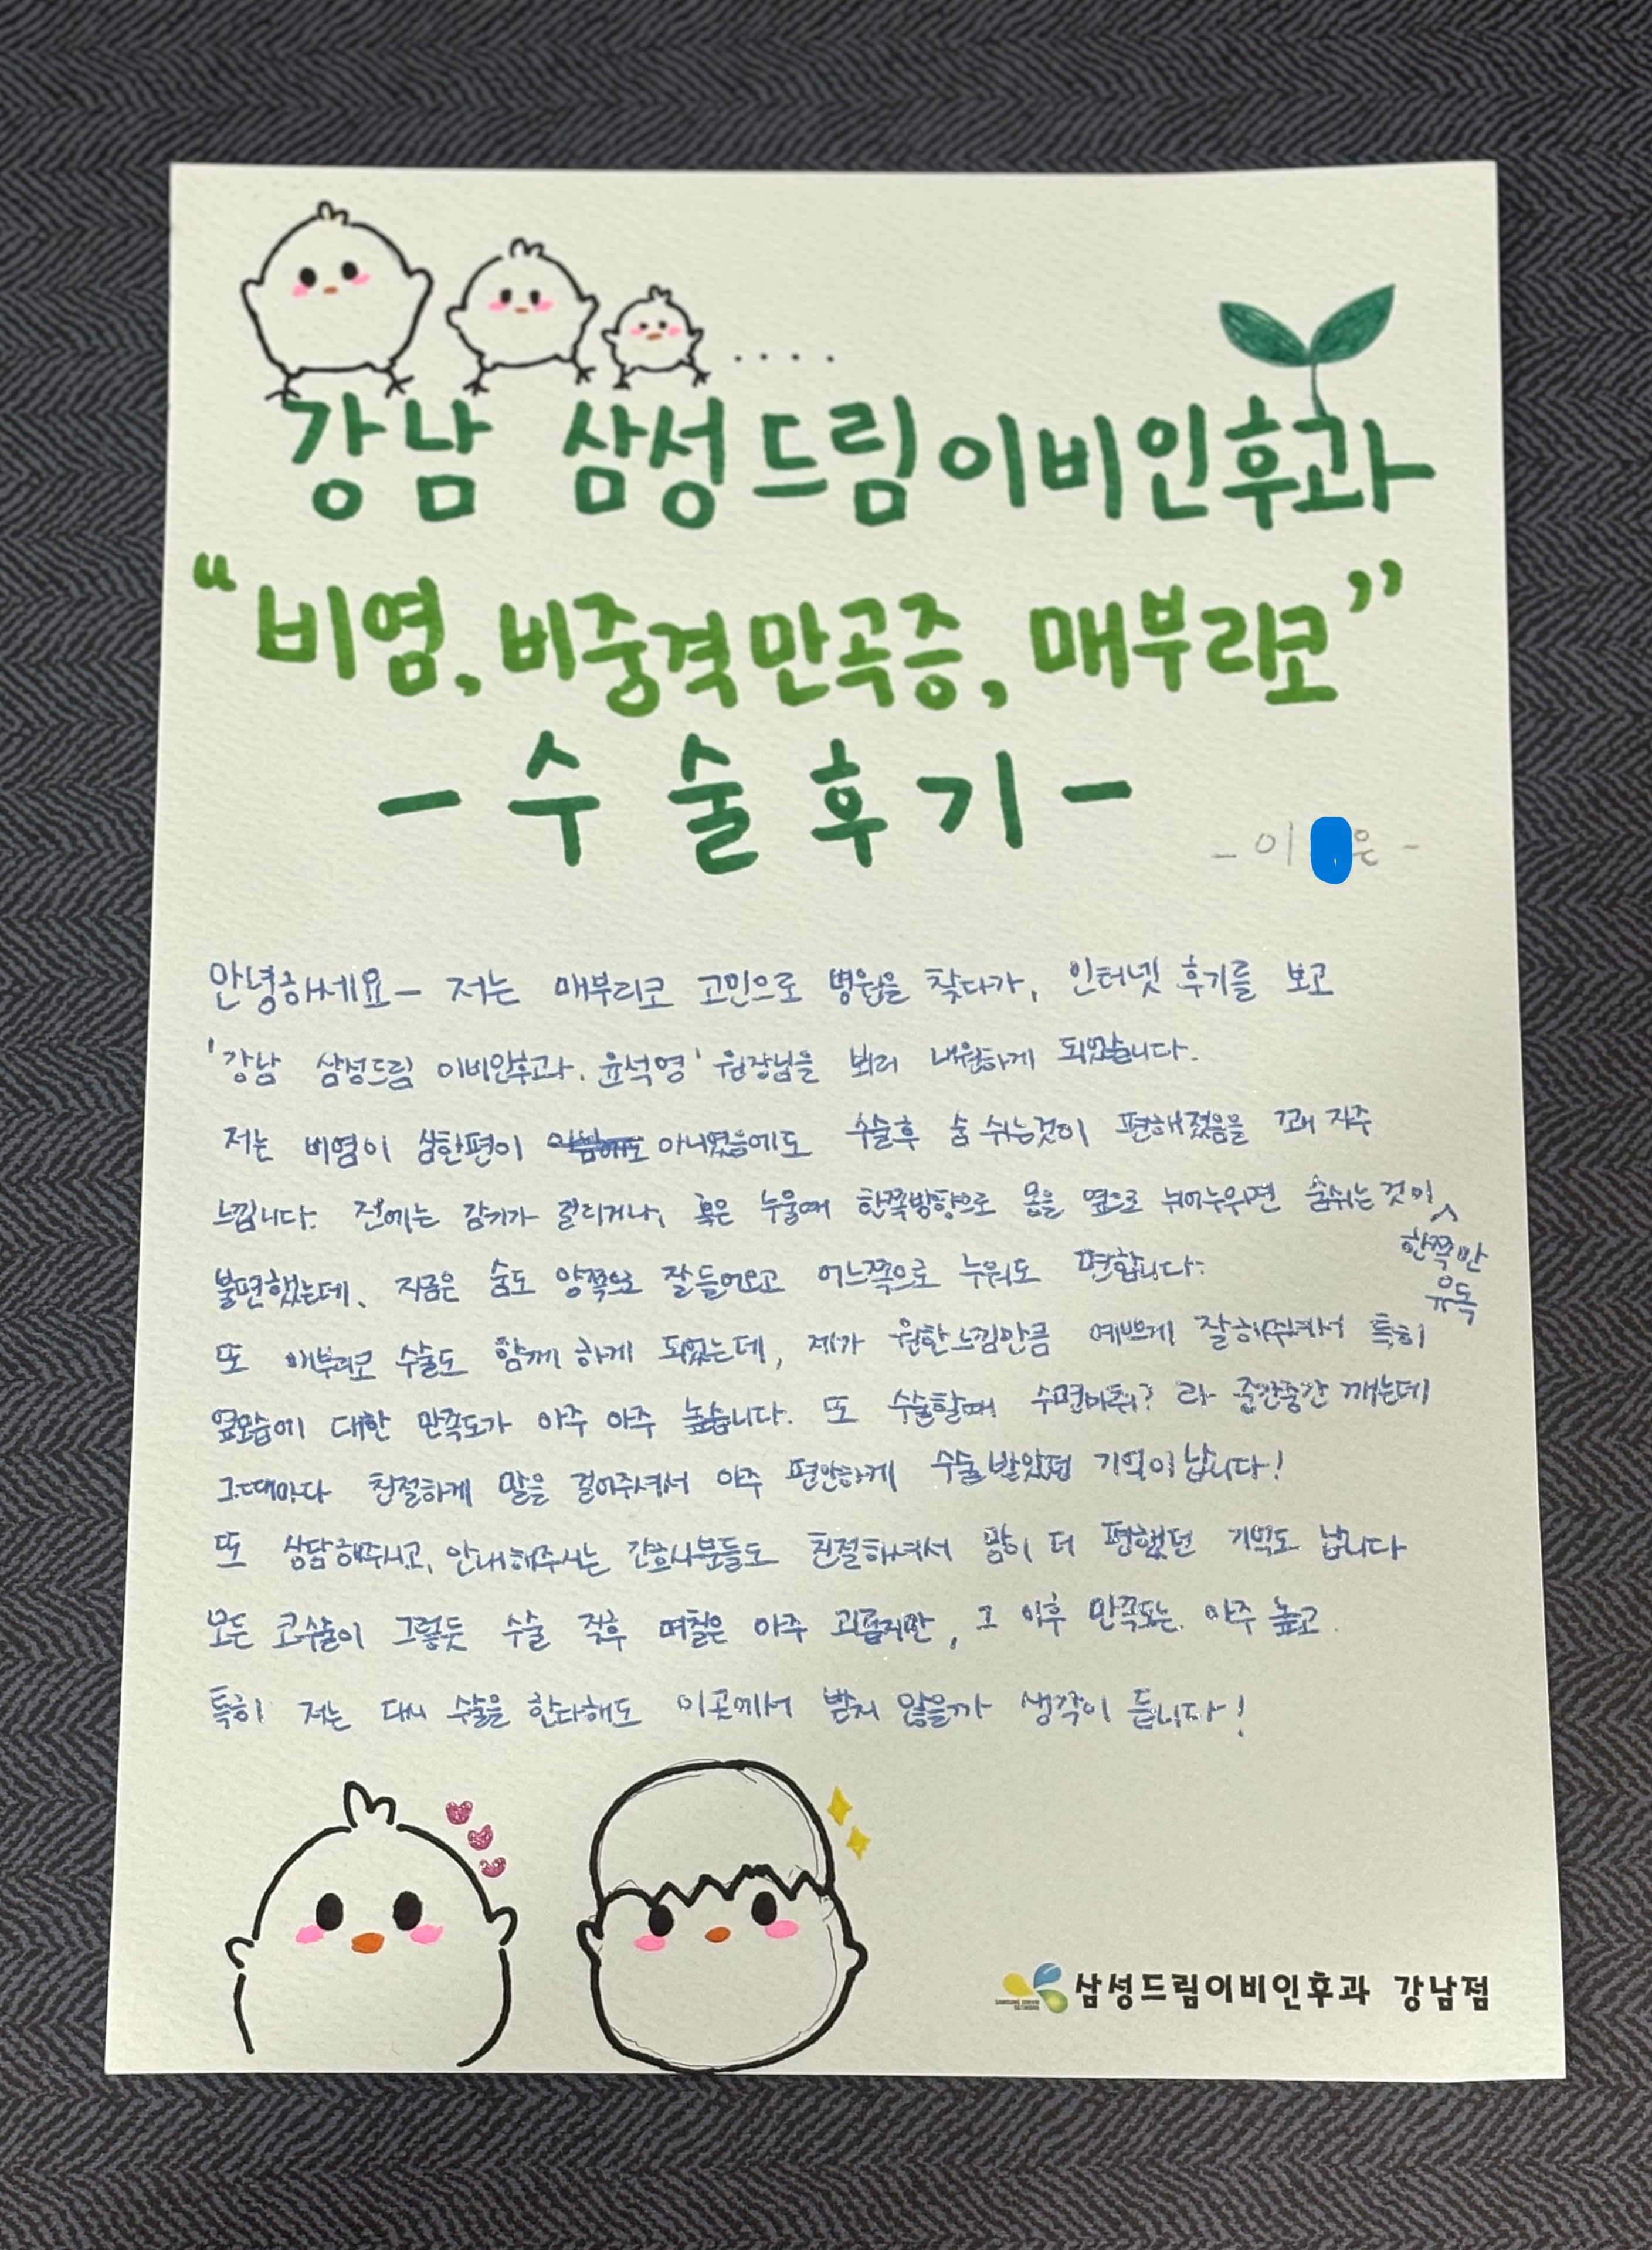 강남 삼성드림이비인후과
“비염, 비중격만곡증, 매부리코”
- 수술후기 -
- 이 은 -
안녕하세요- 저는 매부리코 고민으로 병원을 찾다가, 인터넷 후기를 보고
'강남 삼성드림 이비인후과. 윤석영' 원장님을 뵈러 내원하게 되었습니다.
저는 비염이 심한편이 아니였음에도 수술후 숨 쉬는것이 편해졌음을 꽤 자주
느낍니다. 전에는 감기가 걸리거나, 혹은 누울때 한쪽방향으로 몸을 옆으로 뉘어누우면 숨쉬는 것이
한쪽만
유독
불편했는데, 지금은 숨도 양쪽으로 잘들어오고 어느쪽으로 누워도 편합니다.
또 매부리코 수술도 함께 하게 되었는데, 제가 원한느낌만큼 예쁘게 잘해주셔서 특히
옆모습에 대한 만족도가 아주 아주 높습니다. 또 수술할때 수면마취? 라 중간중간 깨는데
그때마다 친절하게 말을 걸어주셔서 아주 편안하게 수술받았던 기억이 납니다!
또 상담해주시고, 안내해주시는 간호사분들도 친절하셔서 맘이 더 편했던 기억도 납니다
모든 코수술이 그렇듯 수술 직후 며칠은 아주 괴롭지만, 그 이후 만족도는 아주 높고
특히 저는 다시 수술을 한다해도 이곳에서 받지 않을까 생각이 듭니다!
삼성드림이비인후과 강남점